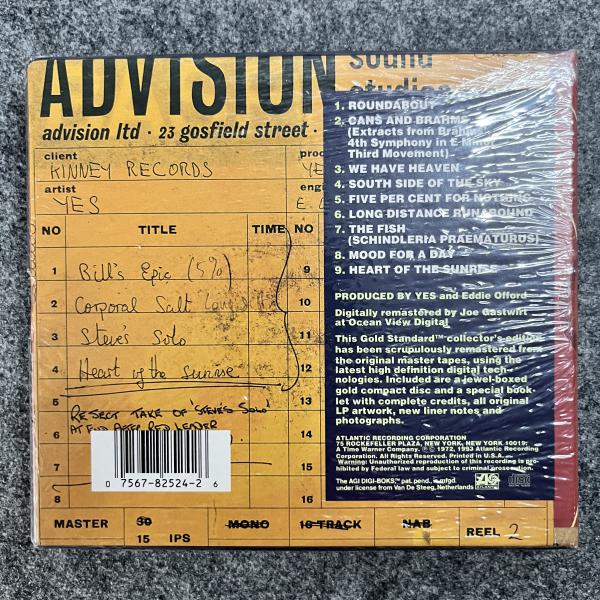 ADVISION
sound
studios
advision ltd · 23 gosfield street ·
client
KINNEY RECORDS
artist
YES
NO TITLE TIME NO
1 Bill's Epic (5%) 9
2 Corporal Salt 10
3 Steve's Solo 11
4 Heart of the Sunrise 12
5
REJECT TAKE OF 'STEVE'S SOLO'
6
AT END AFTER RED LEADER
7
8
15
16
0 7567-82524-2 6
MASTER 30 MONO 16 TRACK NAB
15 IPS
REEL 2
1. ROUNDABOUT
2. CANS AND BRAHMS
(Extracts from Brahms'
4th Symphony in E Minor
Third Movement)
3. WE HAVE HEAVEN
4. SOUTH SIDE OF THE SKY
5. FIVE PER CENT FOR NOTHING
6. LONG DISTANCE RUNAROUND
7. THE FISH
(SCHINDLERIA PRAEMATURUS)
8. MOOD FOR A DAY
9. HEART OF THE SUNRISE
PRODUCED BY YES and Eddie Offord
Digitally remastered by Joe Gastwirt
at Ocean View Digital
This Gold Standard™ collector's edition
has been scrupulously remastered from
the original master tapes, using the
latest high definition digital tech-
nologies. Included are a jewel-boxed
gold compact disc and a special book-
let with complete credits, all original
LP artwork, new liner notes and
photographs.
ATLANTIC RECORDING CORPORATION
75 ROCKEFELLER PLAZA, NEW YORK, NEW YORK 10019.
A Time Warner Company. © ℗ 1972, 1993 Atlantic Recording
Corporation. All Rights Reserved. Printed in U.S.A.
Warning: Unauthorized reproduction of this recording is pro-
hibited by Federal law and subject to criminal prosecution.
The AGI DIGI-BOKS,™ pat. pend., mfgd.
under license from Van De Steeg, Netherlands
ATLANTIC